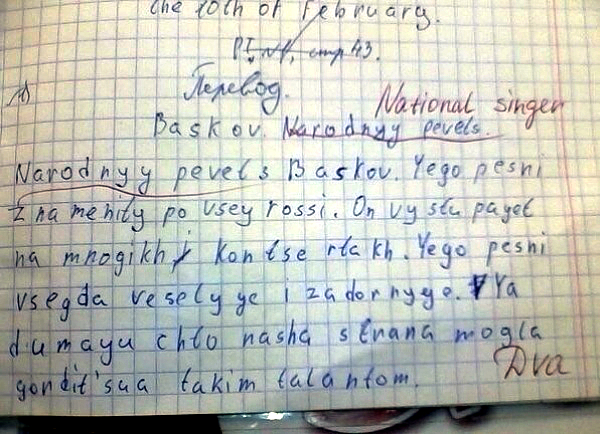 the 10th of February.
стр 43.
1)
Перевод.
National singer
Baskov. Narodnyy pevets.
Narodnyy pevets Baskov. Yego pesni
znamenity po vsey rossi. On vystupayet
na mnogikh kontsertakh. Yego pesni
vsegda veselyye i zadornyye. Ya
dumayu chto nasha strana mogla
gordit'sua takim talantom.
Dva